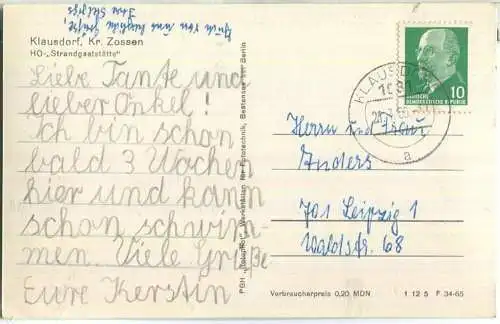 Auch von uns herzliche Grüße,
Klausdorf, Kr. Zossen
HO-„Strandgaststätte“
Liebe Tante und
lieber Onkel!
Ich bin schon
bald 3 Wochen
hier und kann
schon schwim-
men. Viele Grüße
Eure Kerstin
PGH „Rotophot“ Werkstätten für Fototechnik, Bestensee bei Berlin
KLAUSDORF
a
10
DEUTSCHE
DEMOKRATISCHE REPUBLIK
Herrn und Frau
Anders
701 Leipzig 1
Waldstr. 68
Verbraucherpreis 0,20 MDN 1 12 5 F 34-65